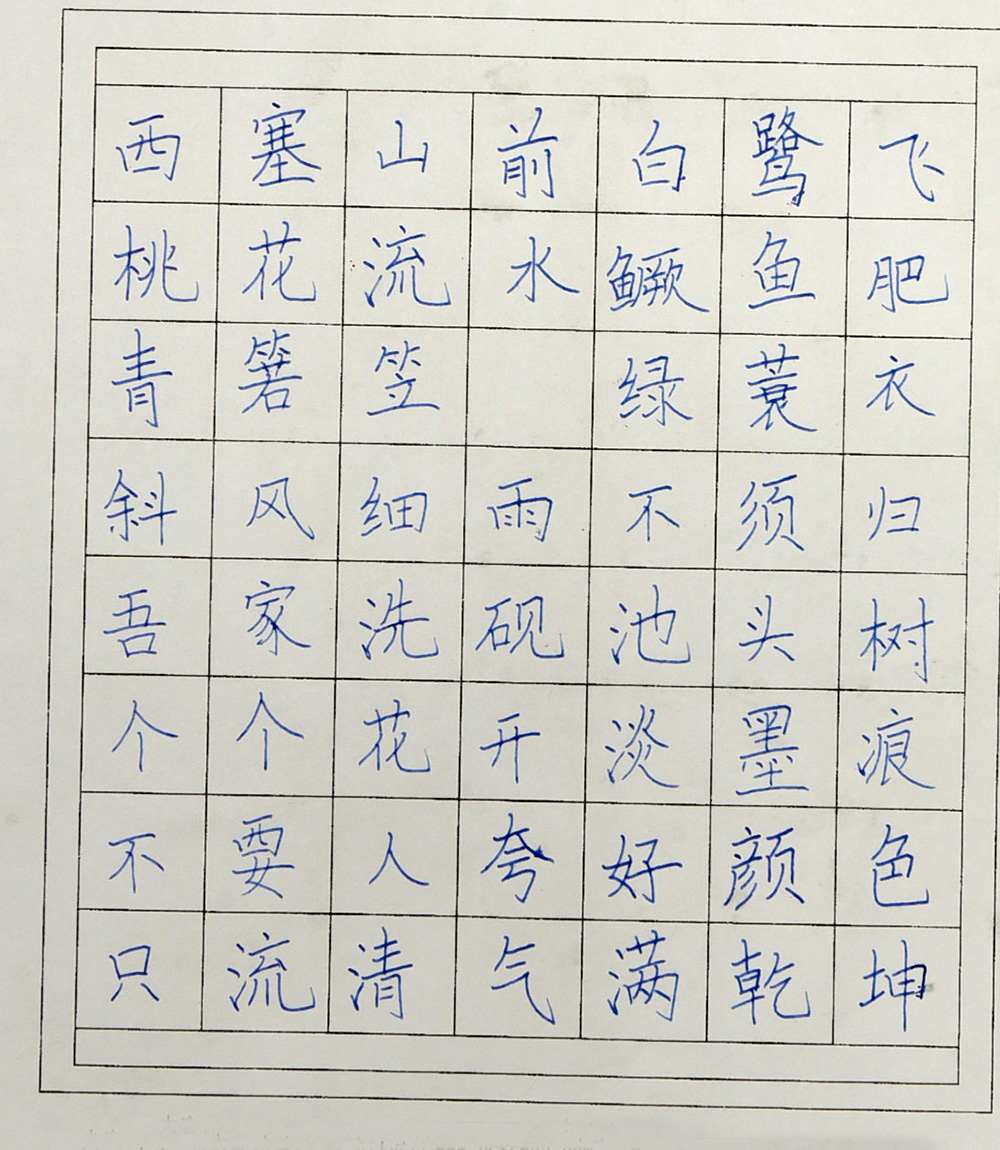 西塞山前白鹭飞
桃花流水鳜鱼肥
青箬笠 绿蓑衣
斜风细雨不须归
吾家洗砚池头树
个个花开淡墨痕
不要人夸好颜色
只流清气满乾坤